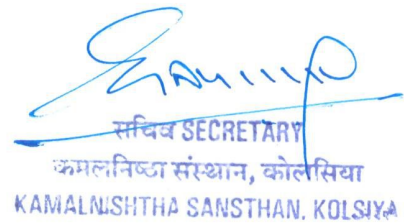 सचिव SECRETARY
कमलनिष्ठा संस्थान, कोलसिया
KAMALNISHTHA SANSTHAN, KOLSIYA